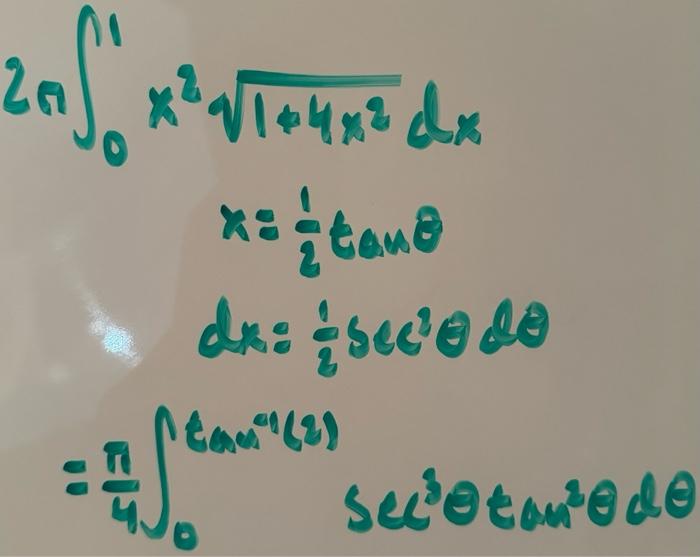 2π∫₀¹ x²√(1+4x²) dx
x = ½ tanθ
dx = ½ sec²θ dθ
= π/4 ∫₀^(tan⁻¹(2)) sec³θ tan²θ dθ